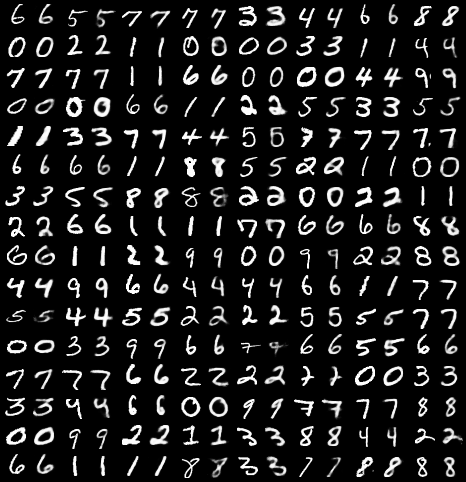 6 6 5 5 7 7 7 7 3 3 4 4 6 6 8 8
0 0 2 2 1 1 0 0 0 0 3 3 1 1 4 4
7 7 7 7 1 1 6 6 0 0 0 0 4 4 9 9
0 0 0 0 6 6 1 1 2 2 5 5 3 3 5 5
1 1 3 3 7 7 4 4 5 5 7 7 7 7 7 7
6 6 6 6 1 1 8 8 5 5 2 2 1 1 0 0
3 3 5 5 8 8 8 8 2 2 0 0 2 2 1 1
2 2 6 6 1 1 1 1 7 7 6 6 6 6 8 8
6 6 1 1 2 2 9 9 0 0 9 9 2 2 8 8
4 4 9 9 6 6 4 4 4 4 6 6 1 1 7 7
5 5 4 4 5 5 2 2 2 2 5 5 5 5 7 7
0 0 3 3 9 9 6 6 7 4 6 6 5 5 6 6
7 7 7 7 6 6 2 2 2 2 2 2 0 0 3 3
3 3 4 4 6 6 0 0 9 9 7 7 7 7 8 8
0 0 9 9 2 2 1 1 3 3 8 8 4 4 2 2
6 6 1 1 1 1 8 8 3 3 7 7 8 8 8 8